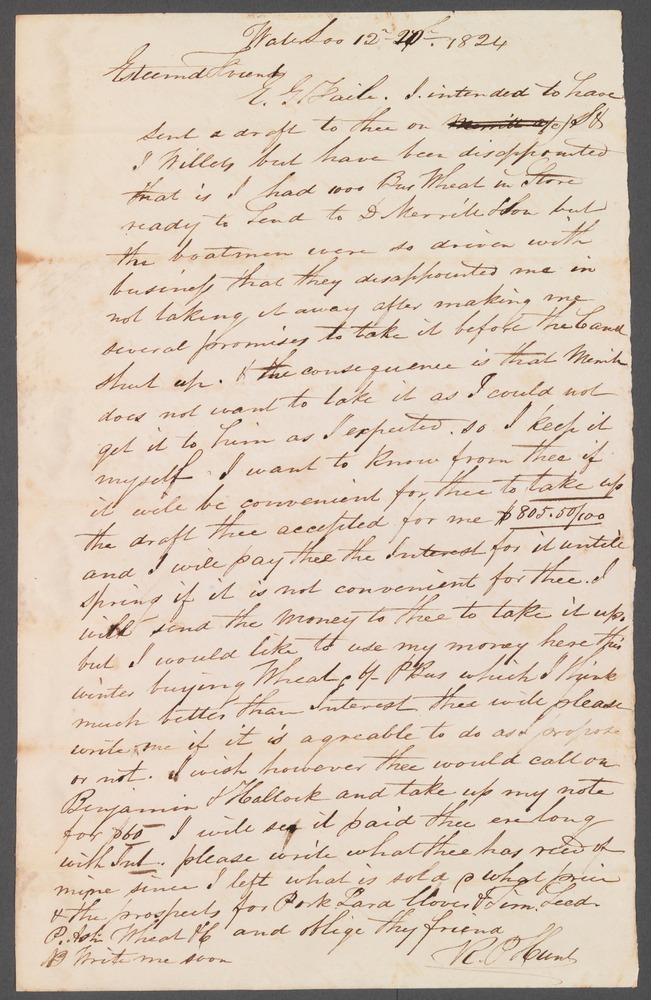 Waterloo 12 1824
Esteemed Friend
E. G. Faile. I intended to have
sent a draft to thee on S &
J Willets but have been disappointed
that is I had 1000 Bus Wheat in Store
ready to Send to D Merrill & Son but
the boatmen were so driven with
business that they disappointed me in
not taking it away after making me
several promises to take it before the Canal
shut up. & the consequence is that Merrill
does not want to take it as I could not
get it to him as I expected. so I keep it
myself. I want to know from thee if
it will be convenient for thee to take up
the draft thee accepted for me $805.50/100
and I will pay thee the Interest for it untill
spring if it is not convenient for thee. I
will send the money to thee to take it up.
but I would like to use my money here this
winter buying Wheat, Bus which I think
much better than Interest thee will please
write me if it is agreable to do as I propose
or not. I wish however thee would call on
Benjamin Hallock and take up my note
for I will see it paid thee ere long
with Int. please write what thee has recd of
mine since I left what is sold & what price
& the prospects for Pork Lard Clover & Tim. Seed.
P. Ash Wheat &c and oblige thy friend
NB Write me soon R. P. Hunt